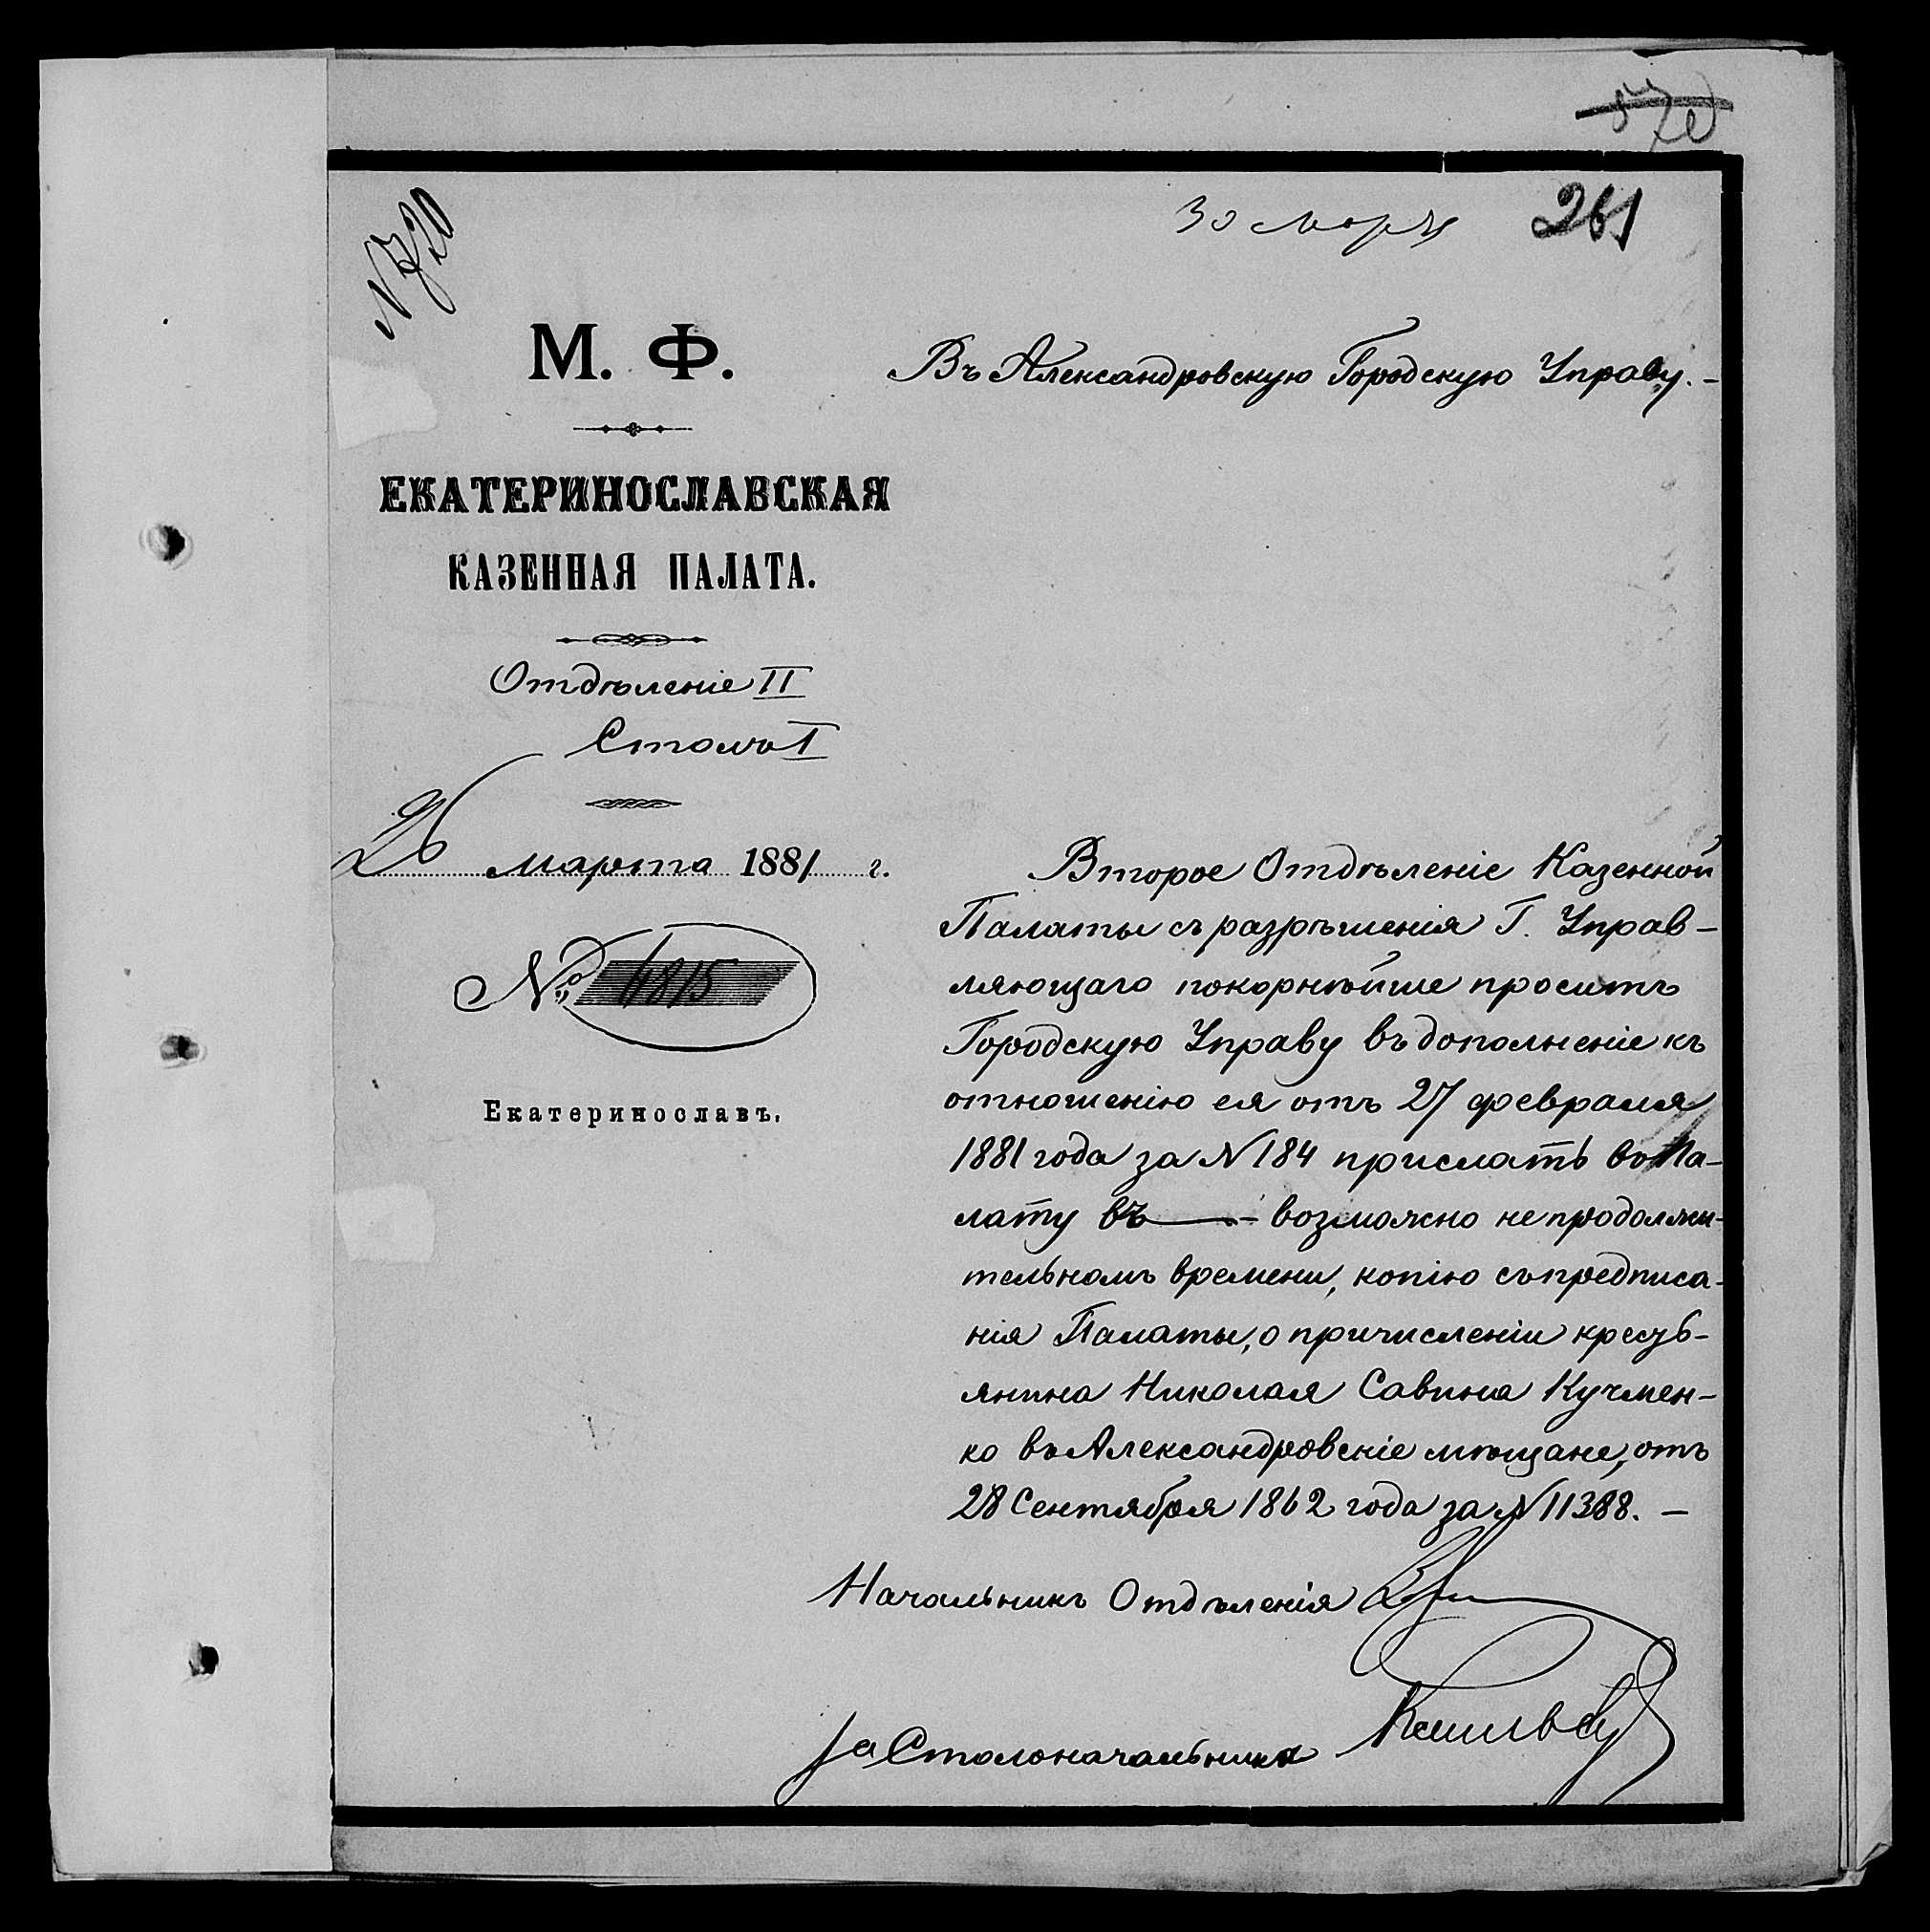 570
30 мар
261
N 720
М. Ф.
Въ Александровскую Городскую Управу. –
ЕКАТЕРИНОСЛАВСКАЯ
КАЗЕННАЯ ПАЛАТА.
Отдѣленіе II
Столъ I
26 марта 1881 г.
№ 4815
Екатеринославъ.
Второе Отдѣленіе Казенной
Палаты съ разрѣшенія Г. Управ-
ляющаго покорнѣйше проситъ
Городскую Управу въ дополненіе къ
отношенію ея отъ 27 февраля
1881 года за N 184 прислать въ Па-
лату въ — возможно непродолжи-
тельномъ времени, копію съ предписа-
нія Палаты, о причисленіи кресть-
янина Николая Савина Кучмен-
ко въ Александровскіе мѣщане, отъ
28 Сентября 1862 года за N 11388. –
Начальникъ Отдѣленія
за Столоначальника